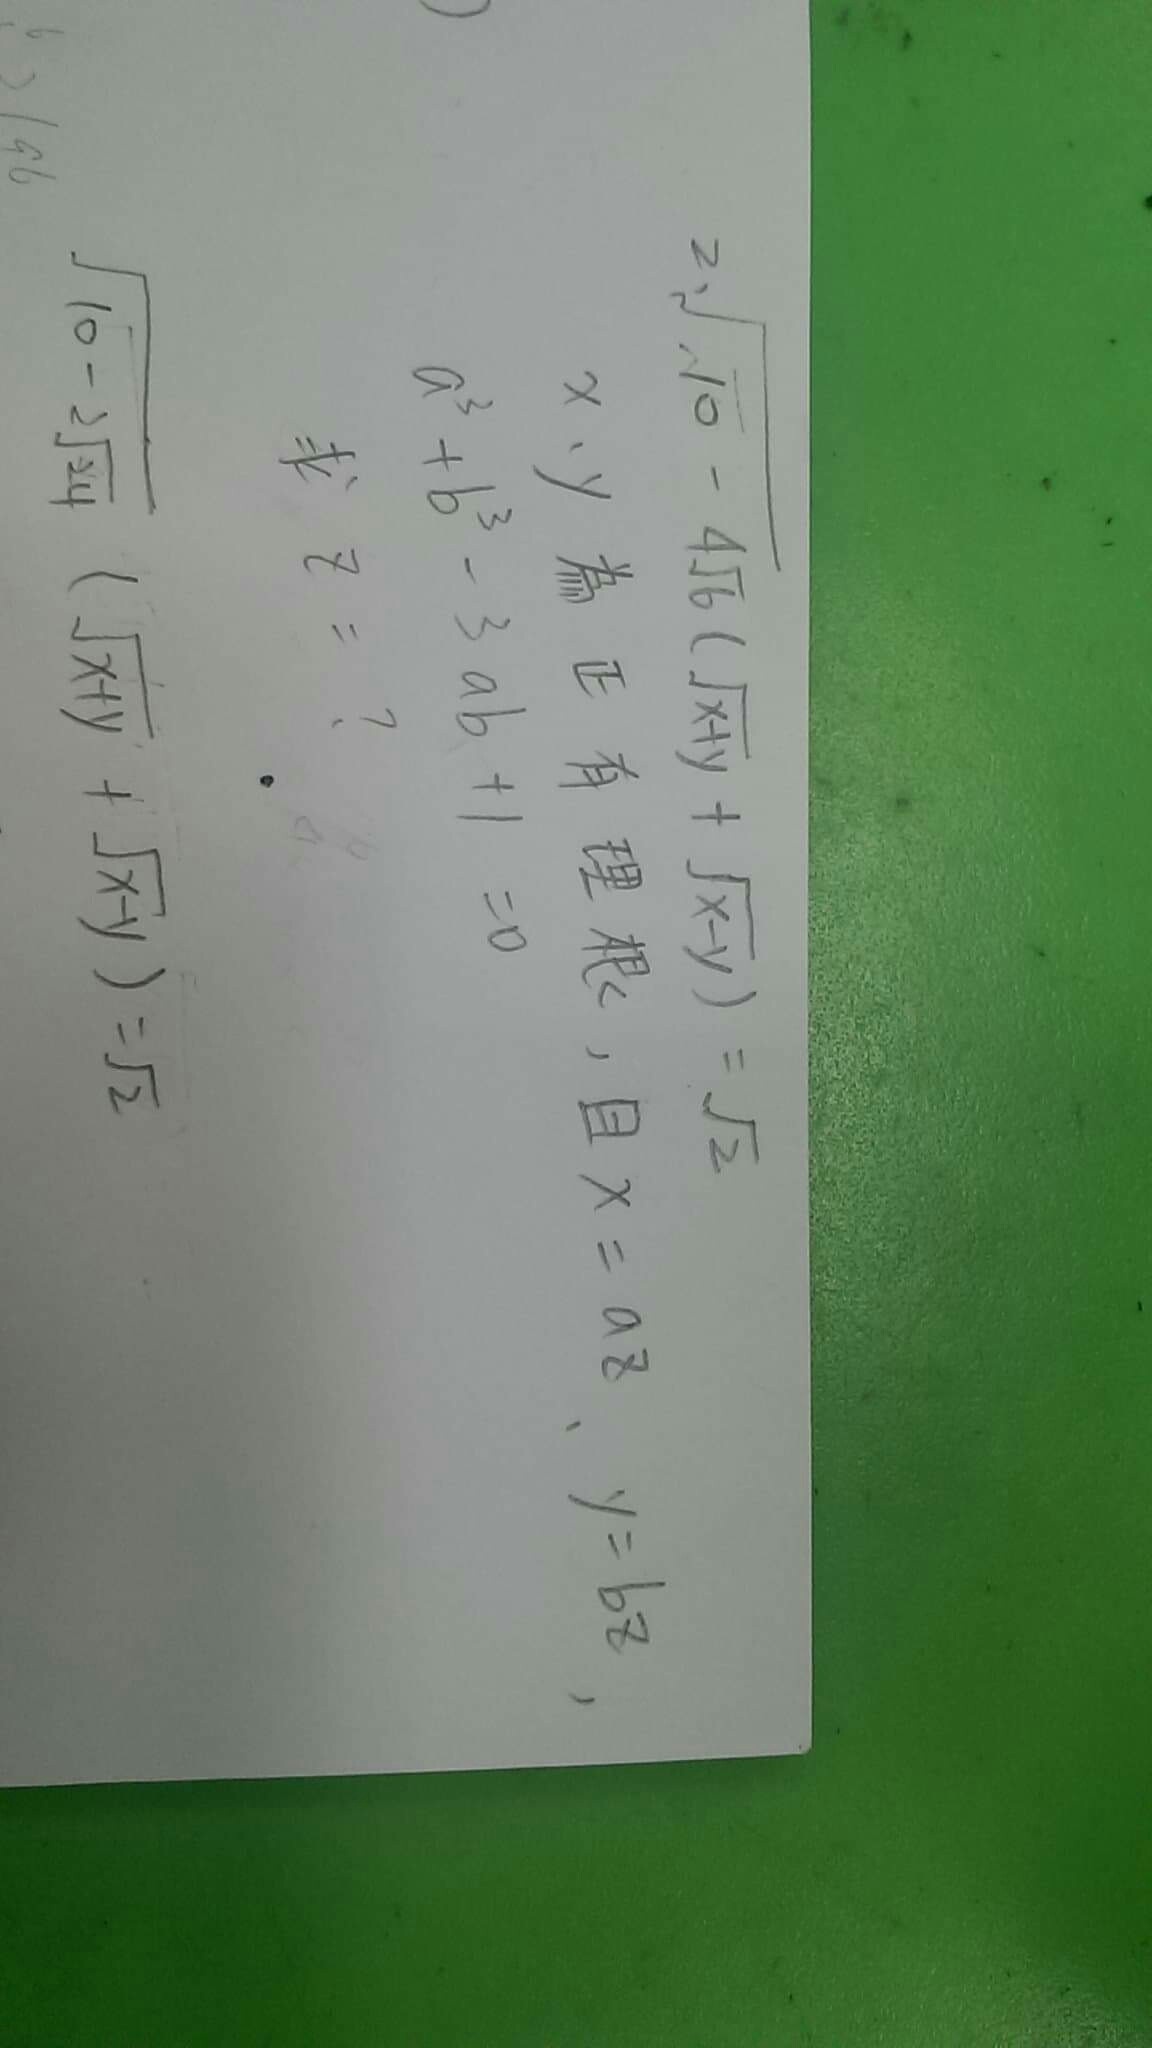 2√10-4√6(√x+y + √x-y) = √2
x、y 為正有理根, 且 x = az、y = bz,
a³+b³-3ab+1=0
求 z = ?
√10-2√24 (√x+y + √x-y) = √2